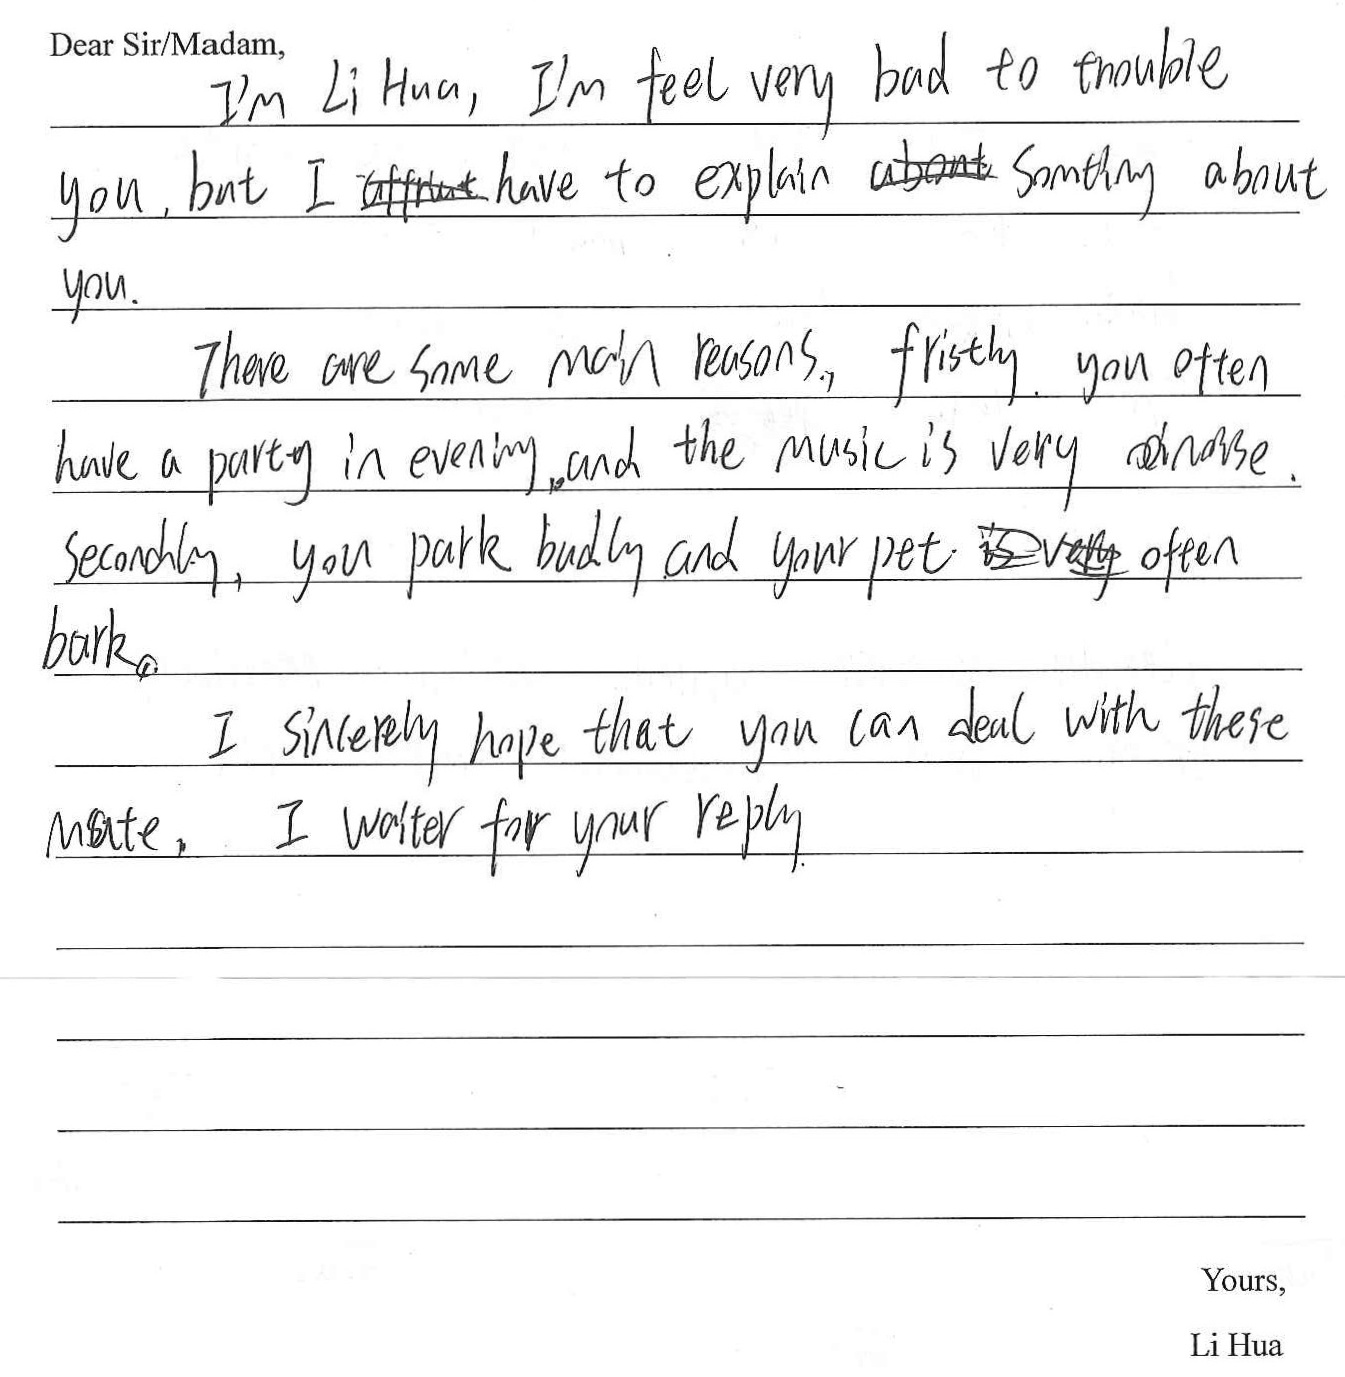 Dear Sir/Madam,
I'm Li Hua, I'm feel very bad to trouble
you, but I have to explain Somthing about
you.
There are some main reasons, fristly. you often
have a party in evening, and the music is very noise.
Secondly, you park badly and your pet often
bark.
I sincerely hope that you can deal with these
mate. I waiter for your reply.
Yours,
Li Hua